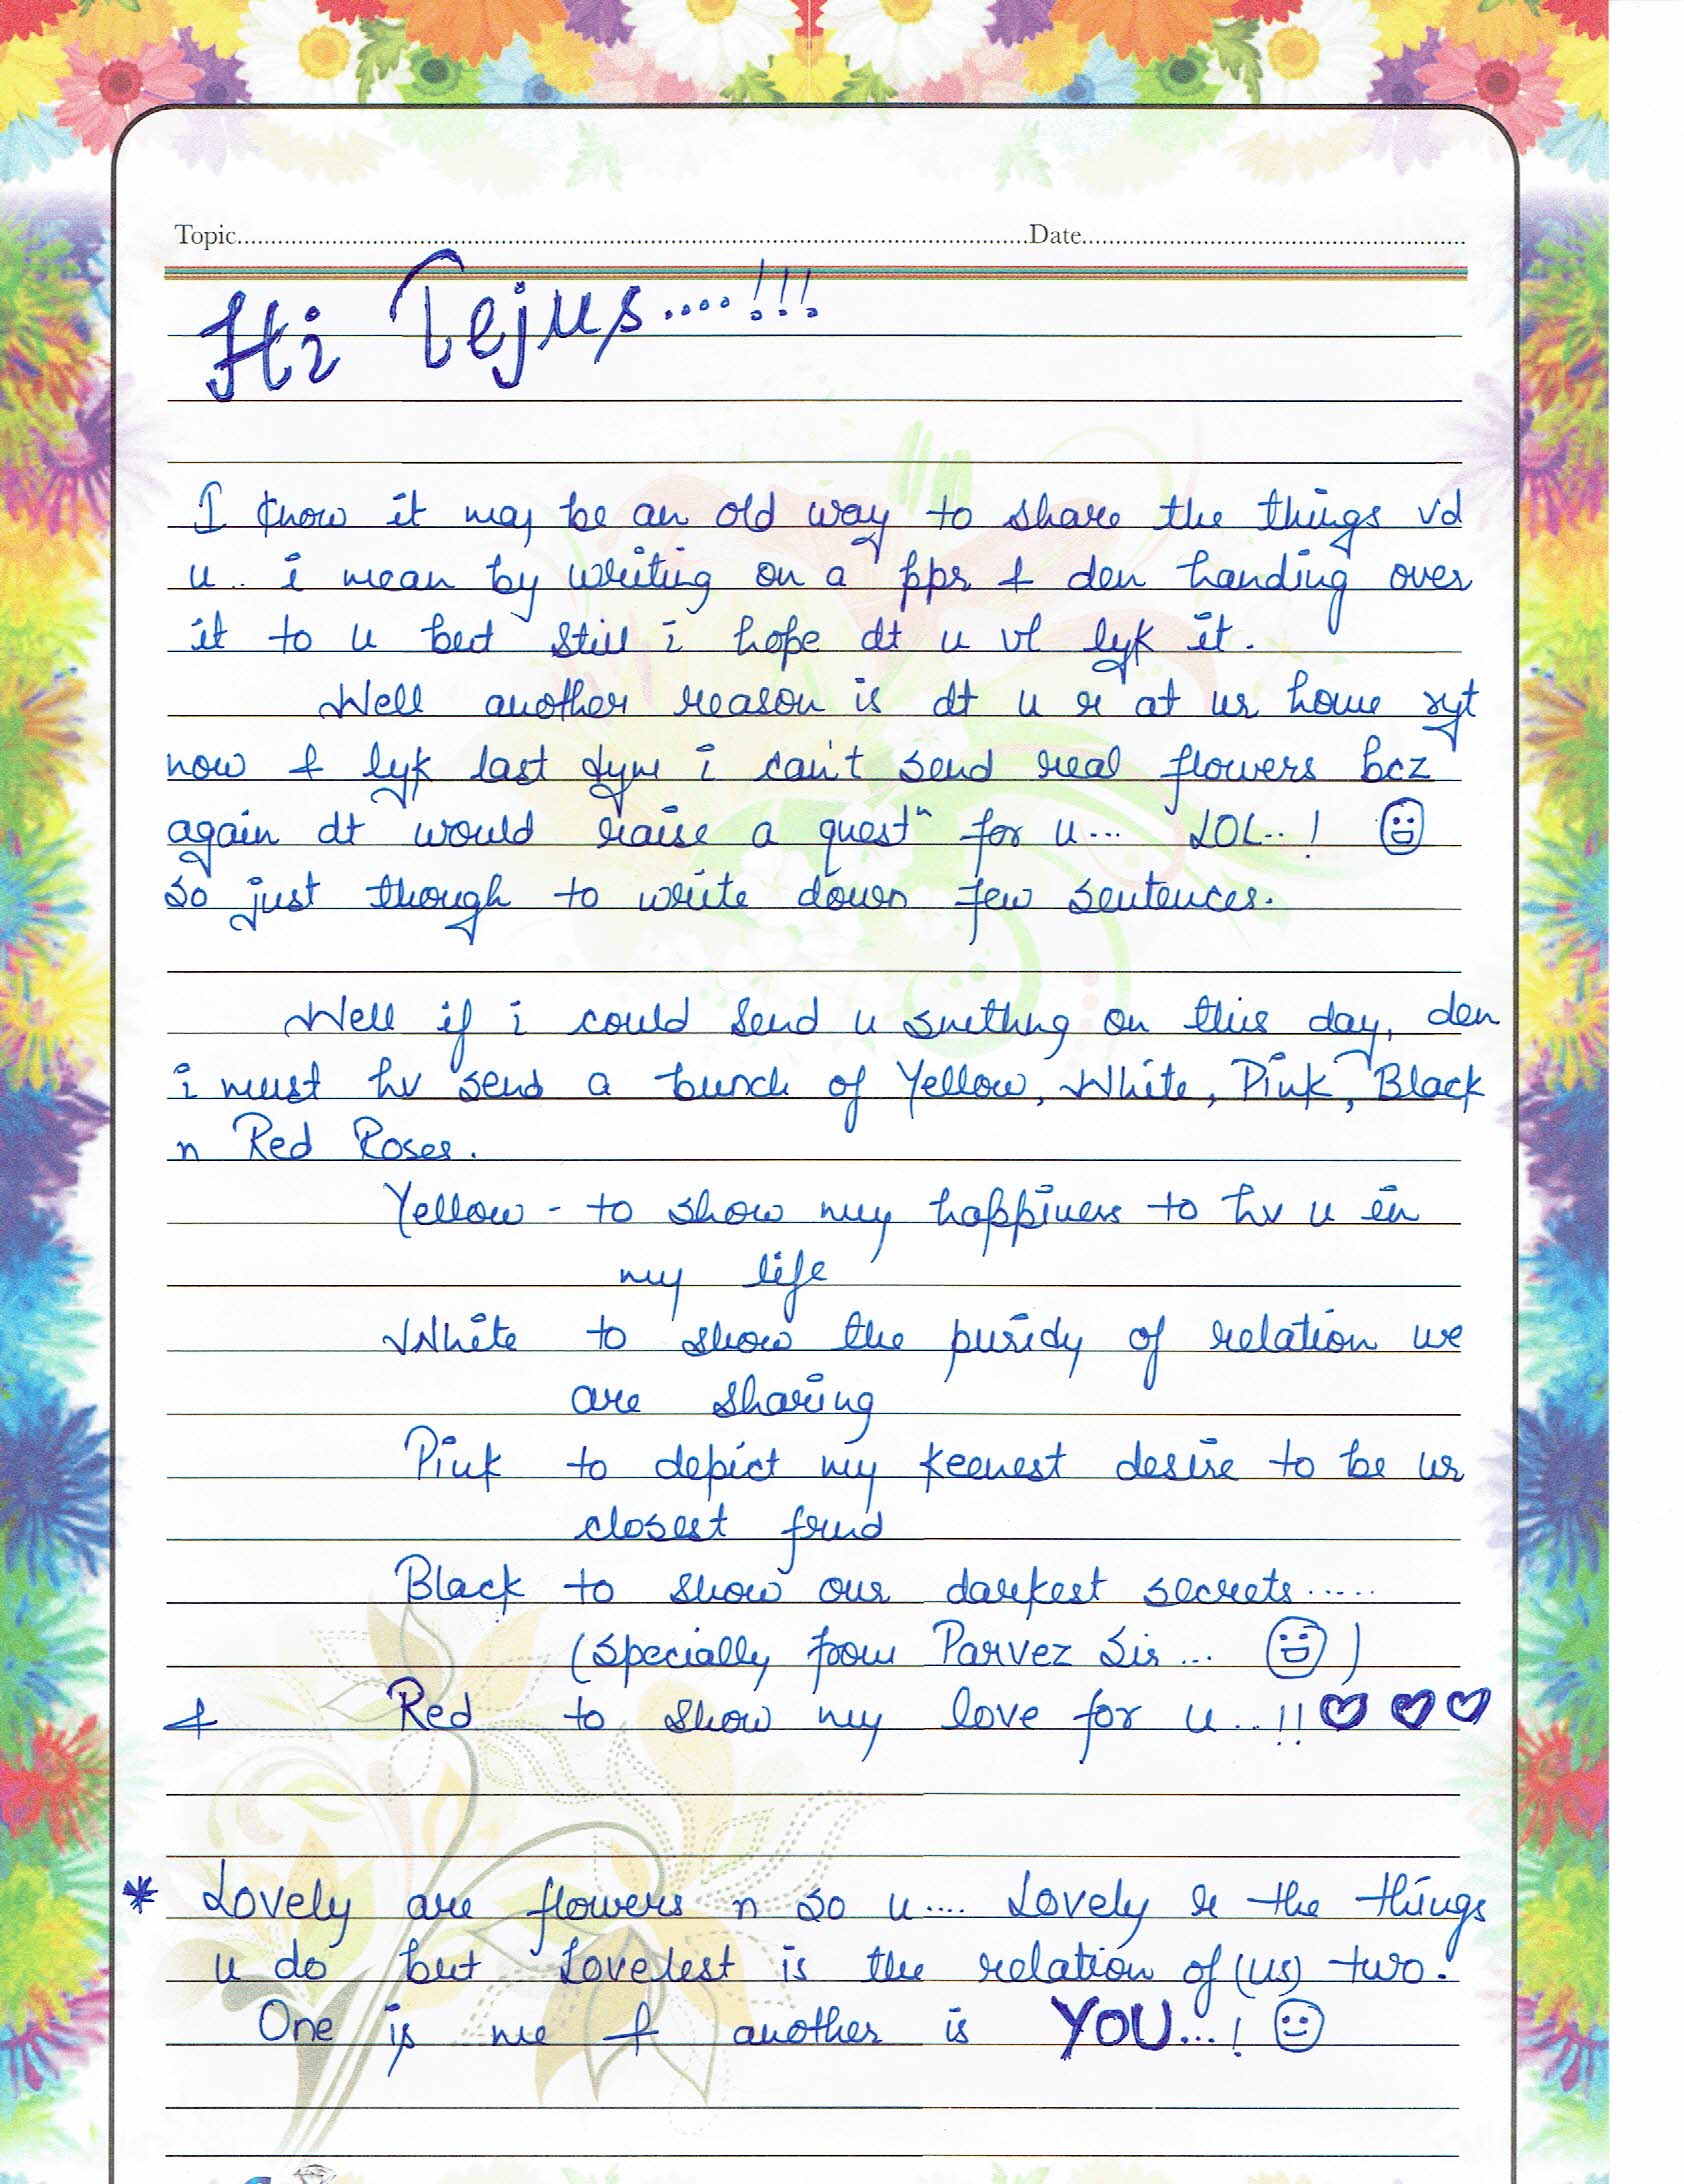 Topic............Date............
Hi Tejus....!!!
I know it may be an old way to share the things vd
u.. i mean by writing on a ppr & den handing over
it to u but still i hope dt u vl lyk it.
Well another reason is dt u r at ur home ryt
now & lyk last tym i can't send real flowers bcz
again dt would raise a questⁿ for u... LOL..!
so just though to write down few sentences.
Well if i could send u smethng on this day, den
i must hv send a bunch of Yellow, White, Pink, Black
n Red Roses.
Yellow - to show my happiness to hv u in
my life
White to show the puridy of relation we
are sharing
Pink to depict my keenest desire to be ur
closest frnd
Black to show our darkest secrets.....
(specially from Parvez Sir... )
& Red to show my love for u..!!
* Lovely are flowers n so u.... Lovely r the things
u do but Lovelest is the relation of (us) two.
One is me & another is YOU...!